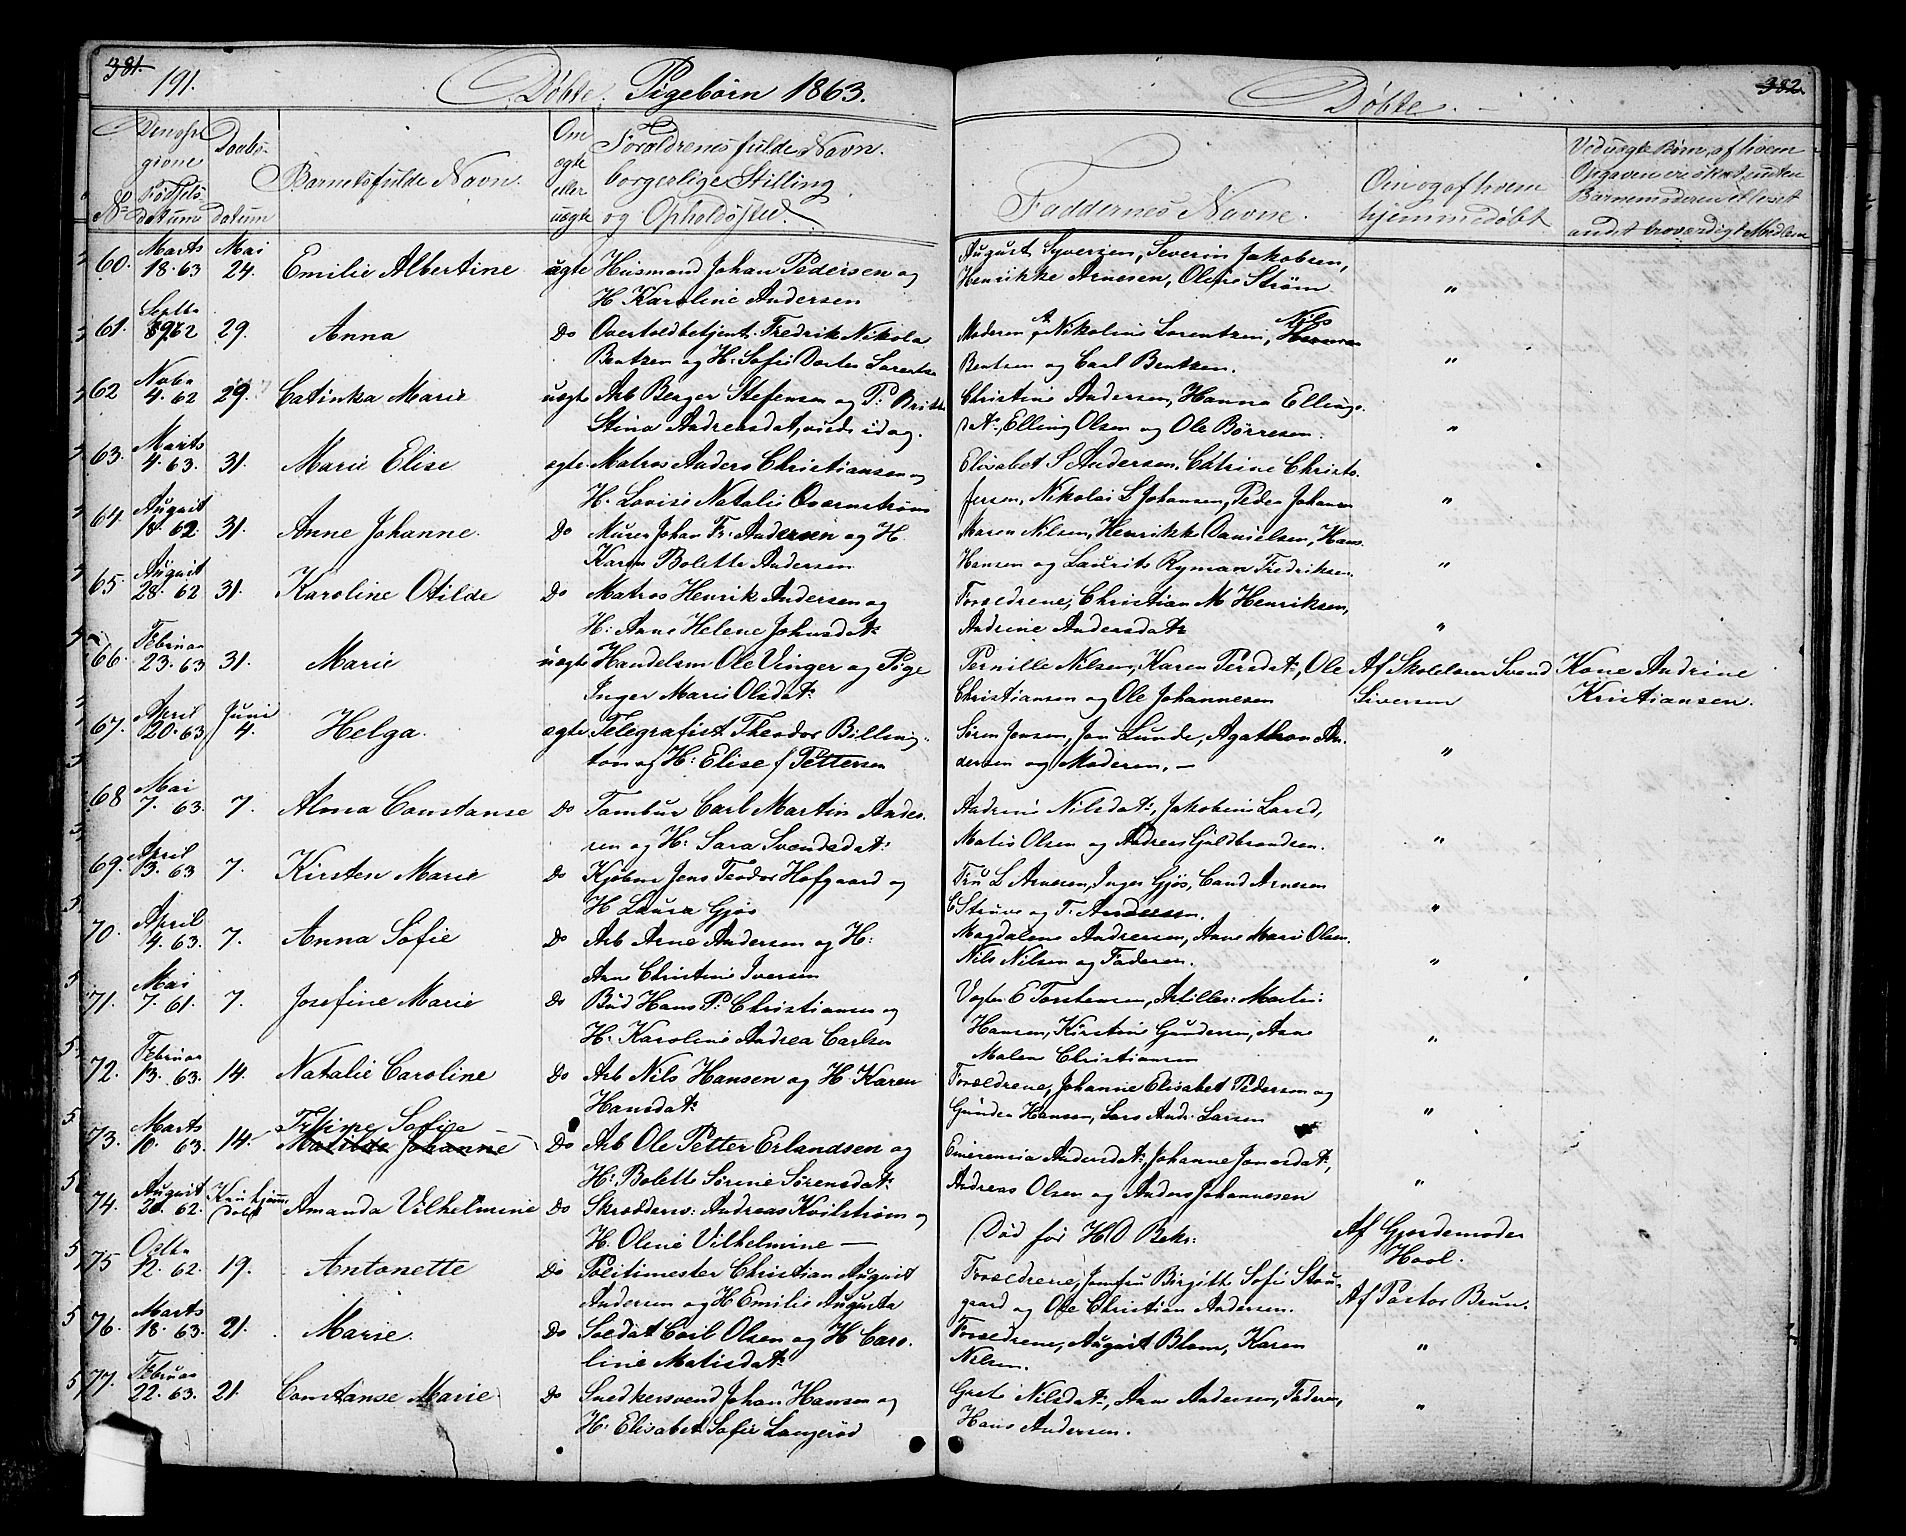 381.
191.
Døbte Pigebørn 1863.
No
Den opgivne Fødselsdatum
Daabsdatum
Barnets fulde Navn.
Om ægte eller uægte
Forældrenes fulde Navn.
borgerlige Stilling
og Opholdsted.
60. Marts 18. 63 Mai 24. Emilie Albertine uægte Husmand Johan Pedersen og
H Karoline Andersen
61. Septbr 62 29. Anna Do Overtoldbetjent Fredrik Nikolai
Bentzen og H. Sofie Dortea Lorentzen
62 Novbr 4. 62 29. Catinka Marie uægte Arb Berger Stefensen og P:
Stina Andreasdat, viede idag.
63. Marts 4. 63. 31. Marie Elise ægte Matros Anders Christiansen og
H. Lovise Natalie Qvarnstrøm
64. August 18. 62 31. Anne Johanne Do Murer Johan Fr: Andersen og H.
Karen Bolette Andersen
65. August 28. 62 31. Karoline Otilde Do Matros Henrik Andersen og
H: Anne Helene Johnsdat:
66. Februar 23. 63 31. Marie uægte Handelsm Ole Vinger og Pige
Inger Marie Olsdat:
67. April 20. 63 Juni 4. Helga. ægte Telegrafist Theodor Billing-
ton og H: Elise f Pettersen
68 Mai 7. 63. 7. Alma Constanse Do Tambur Carl Martin Ander-
sen og H: Sara Svendsdat:
69. April 3. 63 7. Kirsten Marie Do Kjøbm Jens Teodor Hofgaard og
H Laura Gjøs
70. April 4. 63. 7. Anna Sofie Do Arb Arne Andersen og H:
Ane Christine Iversen
71. Mai 7. 61. 7. Josefine Marie Do Bud Hans P: Christiansen og
H. Karoline Andrea Carlsen
72. Februar 13. 63. 14. Natalie Caroline Do Arb Nils Hansen og H Karen
Hansdat:
73. Marts 10. 63. 14. Sofie
Matilde Johanne Do Arb Ole Petter Erlandsen og
H: Bolette Sørine Sørensdat:
74. August 62. Kun hjemmedøbt Amanda Vilhelmine Do Skræddersv: Andreas Kvilstrøm og
H. Oline Vilhelmine —
75 Octbr 12. 62. 19. Antonette Do Politimester Christian August
Andersen og H Emilie Augusta
76. Marts 18. 63. 21. Marie. Do Soldat Carl Olsen og H Caro-
line Matisdat:
77. Februar 22. 63. 21. Constanse Marie Do Snedkersvend Johan Hansen og
H. Elisabet Sofie Langerød
382.
Døbte.
Faddernes Navne.
Om og af hvem
hjemmedøbt
Ved uægte Børn, af hvem
Opgaven er skeet, uden
Barnemoderen et lest
andet troværdigt Medlem
August Syversen, Severin Jakobsen,
Henrikke Arnesen, Oline Strøm "
Moderen, A Nikoline Lorentzen, Nils
Bentzen og Carl Bentzen. "
Christine Andersen, Hanna Ellings-
dat:, Elling Olsen og Ole Børresen. "
Elisabet S Andersen, Catrine Christo-
fersen, Nikolai L Johansen, Peder Johansen "
Maren Nilsen, Henrikke Danielsen, Hans
Hansen og Laurits Ryman Fredriksen. "
Forældrene, Christian M Henriksen,
Andrine Andersdat: "
Pernille Nilsen, Karen Persdat:, Ole Af Skolelærer Svend Kone Andrine
Christiansen og Ole Johannesen Siversen Kristiansen.
Søren Jensen, Jan Lunde, Agathon An-
dersen og Moderen. — "
Andrine Nilsdat:, Jakobine Larsd,
Matis Olsen og Andreas Guldbrandsen. "
Fru L Arnesen, Inger Gjøs, Cand Arnesen
C Struve og T. Andersen. "
Magdalene Andreasen, Anne Marie Olsen,
Nils Nilsen og Faderen. "
Vogter E Torstensen, Artiller: Martin
Hansen, Kirstine Gundersen, Ane
Malene Christiansen "
Forældrene, Johanne Elisabet Pedersen og
Gunder Hansen, Lars Andr. Larsen "
Emerensia Andersdat:, Johanne Jonasdat:,
Andreas Olsen og Anders Johannesen "
Død før H. D. Bekr: Af Gjordemoder
Hool.
Forældrene, Jomfru Birgitte Sofie Stou-
gaard og Ole Christian Andersen. Af Pastor Bruun.
Forældrene, August Blom, Karen
Nilsen. "
Grete Nilsdat:, Ane Andersen, Faderen,
Hans Andersen. "